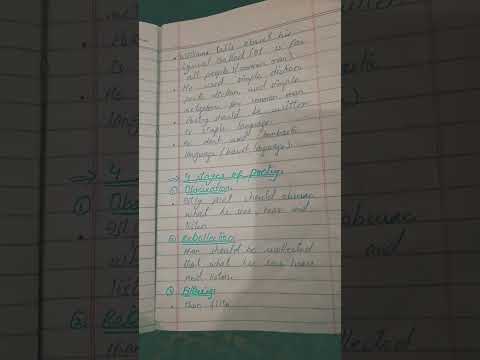 • William talks about his
lyrical Ballad (It is for
all people) (common man)
• He used simple diction
diction and simple
for common man
• Poetry should be written
in simple language
• He dont use bombastic
language (hard language)
=> 4 stages of Poetry
① Observation
• poet should observe
what he see, hear and
listen
② Recollection
then should be recollected
that what he see, hear
and listen.
③ Filtering
• then filte